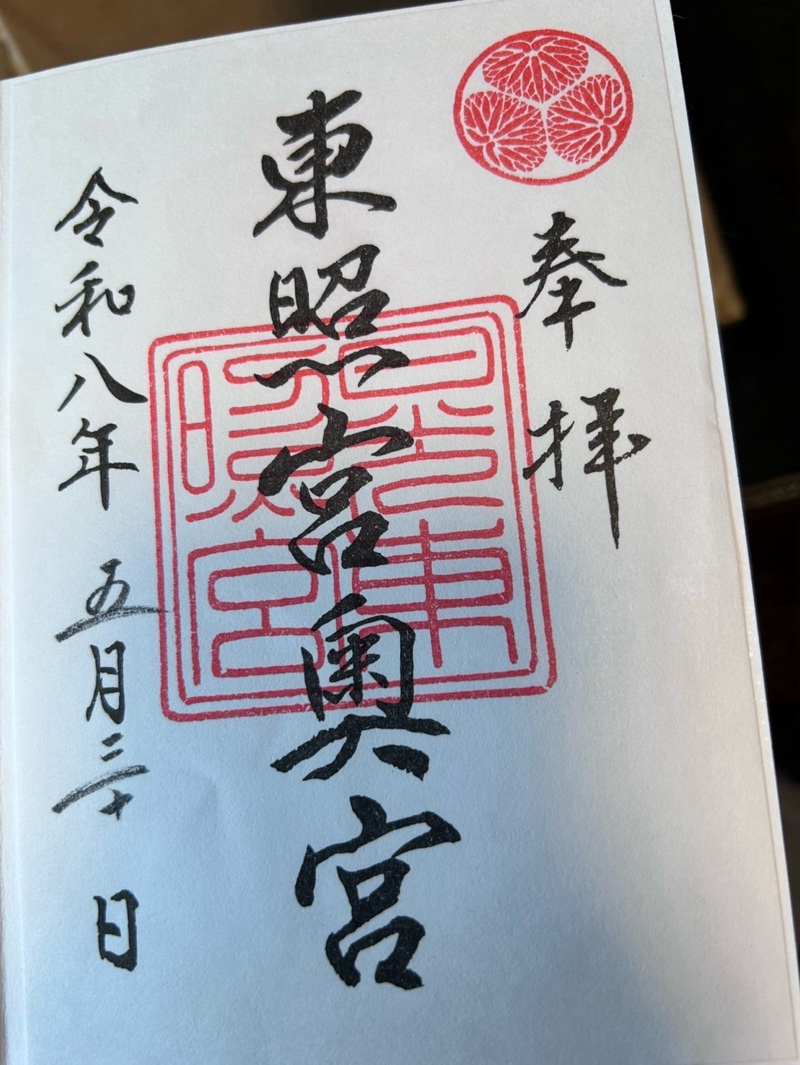 奉拝
東照宮奥宮
令和八年 五月三十日
日光東
照宮